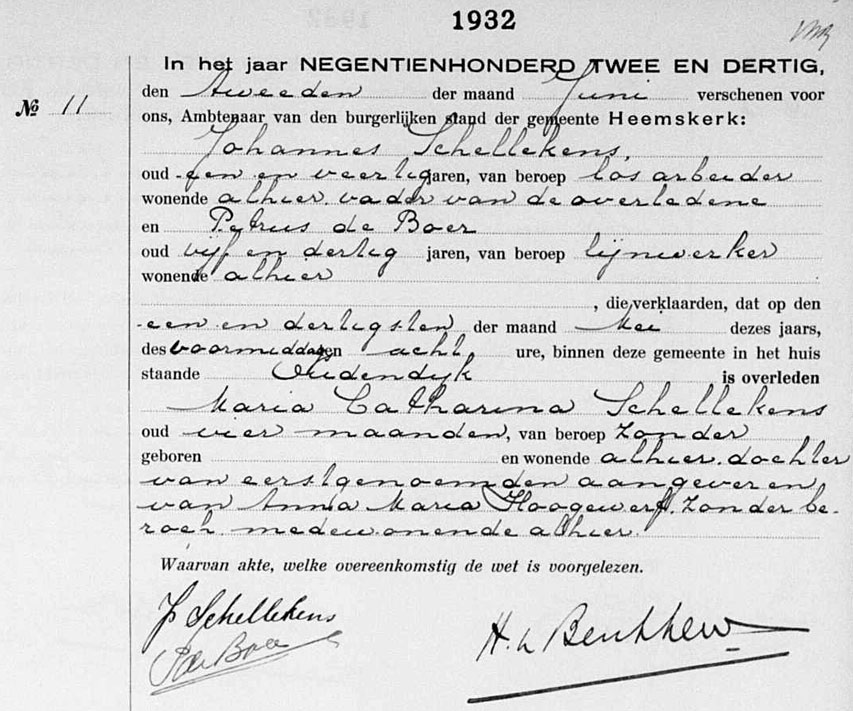 1932
In het jaar NEGENTIENHONDERD TWEE EN DERTIG,
den tweeden der maand Juni verschenen voor
№ 11
ons, Ambtenaar van den burgerlijken stand der gemeente Heemskerk:
Johannes Schellekens,
oud een en veertig jaren, van beroep los arbeider
wonende alhier, vader van de overledene
en Petrus de Boer
oud vijf en dertig jaren, van beroep lijnwerker
wonende alhier
, die verklaarden, dat op den
een en dertigsten der maand Mei dezes jaars,
des voormiddagen acht ure, binnen deze gemeente in het huis
staande Oudendijk is overleden
Maria Catharina Schellekens
oud vier maanden, van beroep zonder
geboren en wonende alhier, dochter
van eerstgenoemden aangever en
van Anna Maria Hoogewerf, zonder be-
roep, medewonende alhier.
Waarvan akte, welke overeenkomstig de wet is voorgelezen.
J Schellekens
P de Boer
H.